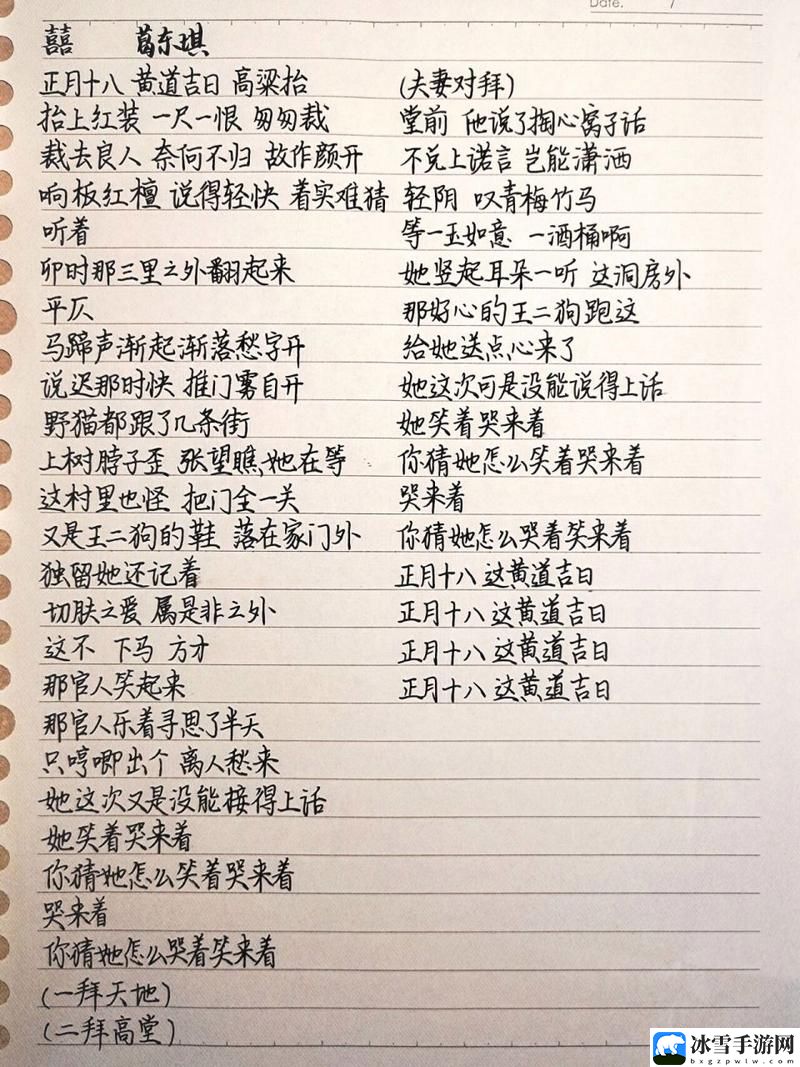 Date. /
囍 葛东琪
正月十八 黄道吉日 高粱抬
抬上红装 一尺一恨 匆匆裁
裁去良人 奈何不归 故作颜开
响板红檀 说得轻快 着实难猜
听着
卯时那三里之外翻起来
平仄
马蹄声渐起渐落愁字开
说迟那时快 推门雾自开
野猫都跟了几条街
上树脖子歪 张望瞧她在等
这村里也怪 把门全一关
又是王二狗的鞋 落在家门外
独留她还记着
切肤之爱 属是非之外
这不 下马 方才
那官人笑起来
那官人乐着寻思了半天
只哼唧出个 离人愁来
她这次又是没能接得上话
她笑着哭来着
你猜她怎么笑着哭来着
哭来着
你猜她怎么哭着笑来着
(一拜天地)
(二拜高堂)
(夫妻对拜)
堂前 他说了掏心窝子话
不兑上诺言 岂能潇洒
轻阴 叹青梅竹马
等一玉如意 一酒桶啊
她竖起耳朵一听 这洞房外
那好心的王二狗跑这
给她送点心来了
她这次可是没能说得上话
她笑着哭来着
你猜她怎么笑着哭来着
哭来着
你猜她怎么哭着笑来着
正月十八 这黄道吉日
正月十八 这黄道吉日
正月十八 这黄道吉日
正月十八 这黄道吉日
冰雪手游网
bxgzpwlw.com